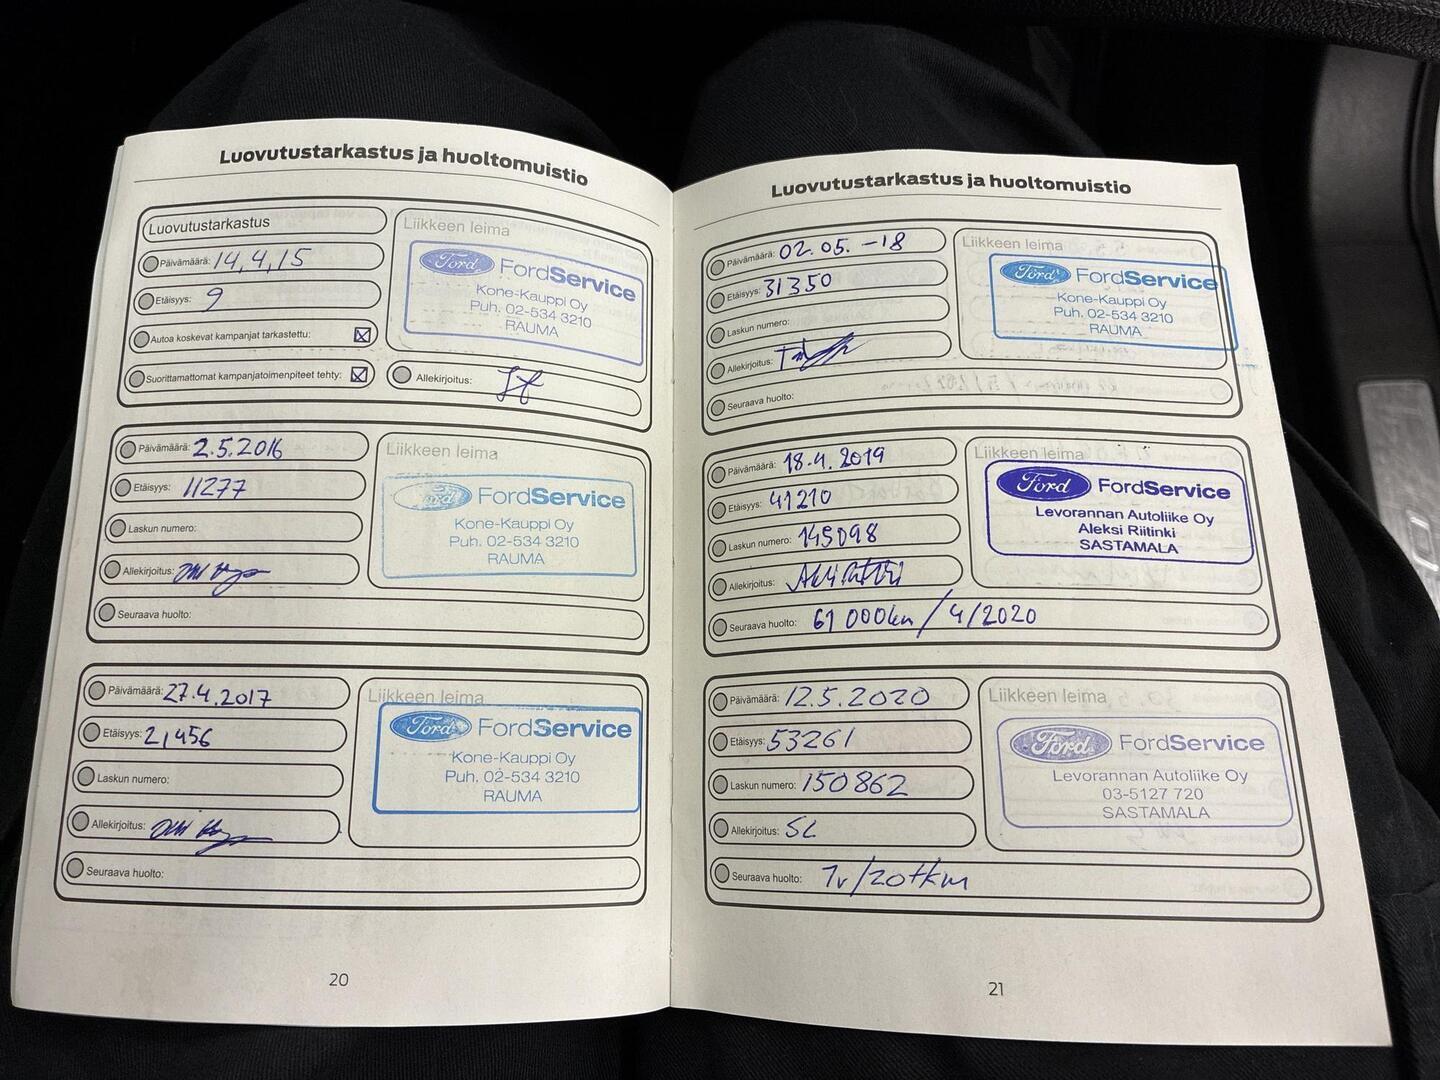 Luovutustarkastus ja huoltomuistio
Luovutustarkastus
Päivämäärä: 14,4,15
Etäisyys: 9
Autoa koskevat kampanjat tarkastettu:
Suorittamattomat kampanjatoimenpiteet tehty:
Liikkeen leima
Ford FordService
Kone-Kauppi Oy
Puh. 02-534 3210
RAUMA
Allekirjoitus:
Päivämäärä: 2.5.2016
Etäisyys: 11277
Laskun numero:
Allekirjoitus:
Seuraava huolto:
Liikkeen leima
Ford FordService
Kone-Kauppi Oy
Puh. 02-534 3210
RAUMA
Päivämäärä: 27.4.2017
Etäisyys: 21456
Laskun numero:
Allekirjoitus:
Seuraava huolto:
Liikkeen leima
Ford FordService
Kone-Kauppi Oy
Puh. 02-534 3210
RAUMA
20
Luovutustarkastus ja huoltomuistio
Päivämäärä: 02.05.-18
Etäisyys: 31350
Laskun numero:
Allekirjoitus:
Seuraava huolto:
Liikkeen leima
Ford FordService
Kone-Kauppi Oy
Puh. 02-534 3210
RAUMA
Päivämäärä: 18.4.2019
Etäisyys: 41210
Laskun numero: 145098
Allekirjoitus:
Seuraava huolto: 61 000km / 4/2020
Liikkeen leima
Ford FordService
Levorannan Autoliike Oy
Aleksi Riitinki
SASTAMALA
Päivämäärä: 12.5.2020
Etäisyys: 53261
Laskun numero: 150862
Allekirjoitus: SL
Seuraava huolto: 1v/20tkm
Liikkeen leima
Ford FordService
Levorannan Autoliike Oy
03-5127 720
SASTAMALA
21